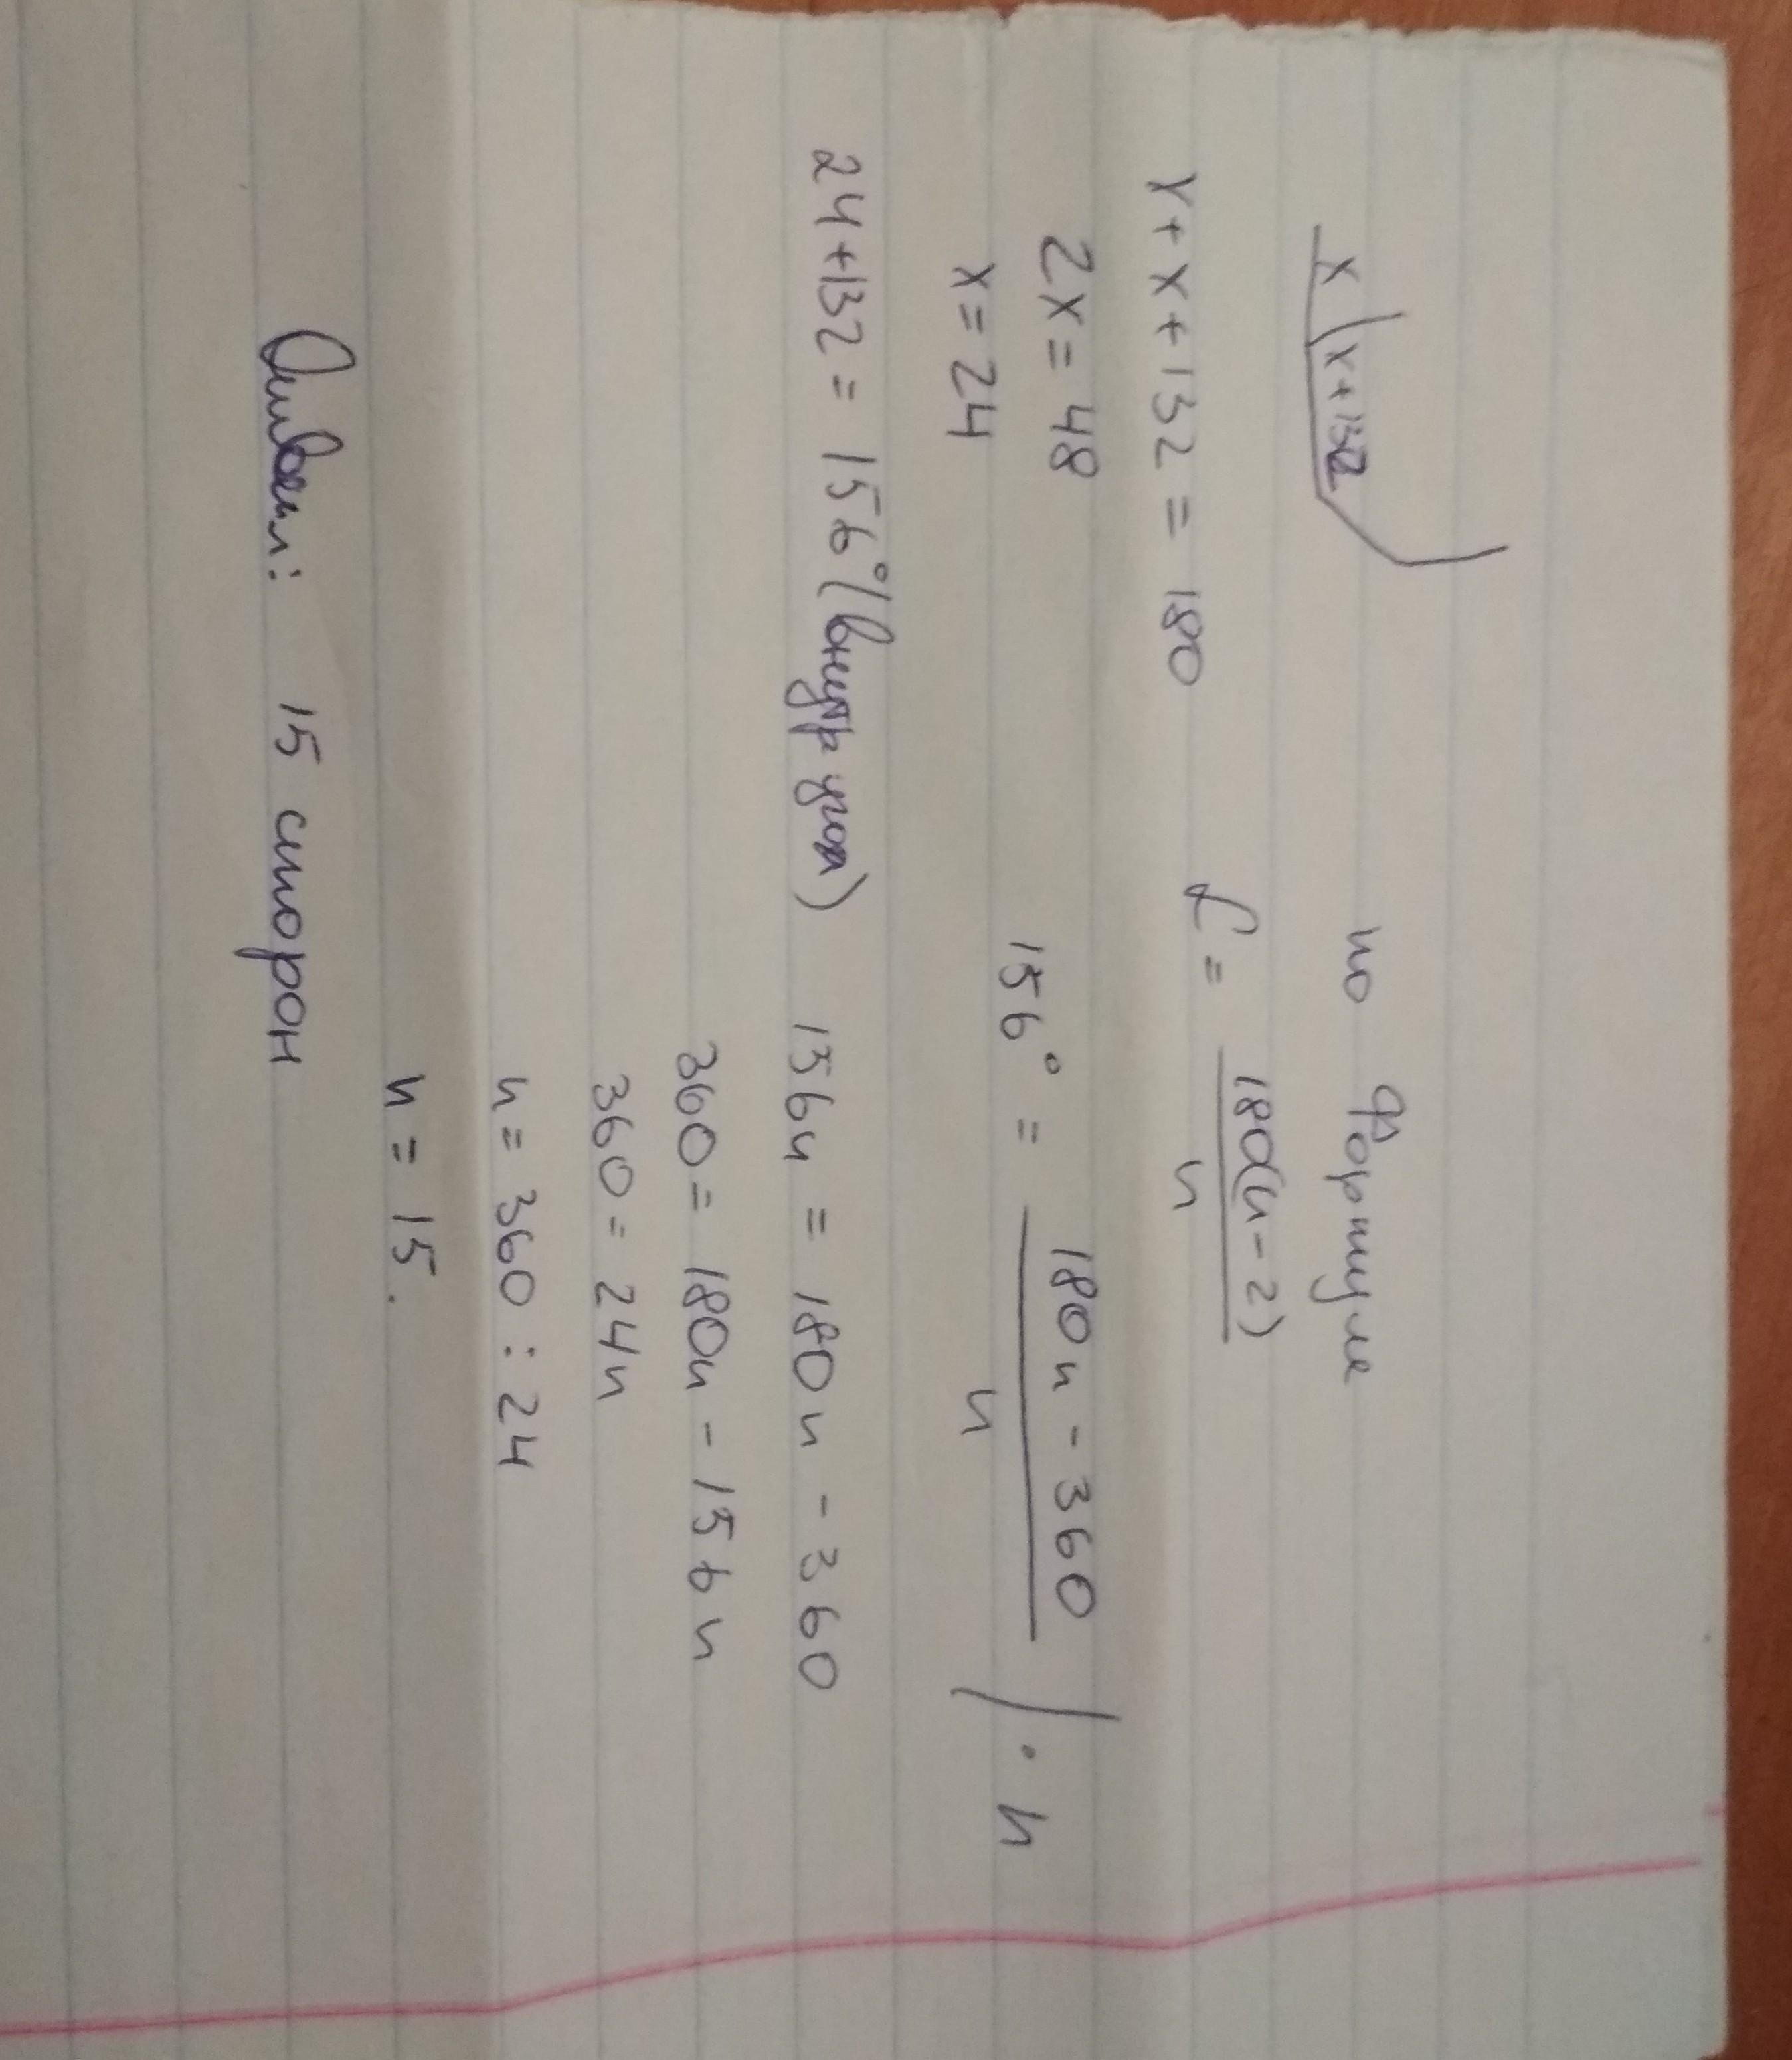 x x+132
x + x + 132 = 180
2x = 48
x = 24
24 + 132 = 156° (внутр угол)
по формуле
α = 180(n - 2) / n
156° = 180n - 360 / n | · n
156n = 180n - 360
360 = 180n - 156n
360 = 24n
n = 360 : 24
n = 15.
Ответ: 15 сторон